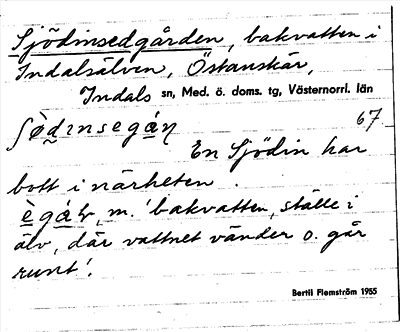 Sjödinsedgården, bakvatten i
Indalsälven, Östanskär,
Indals sn, Med. ö. doms. tg, Västernorrl. län
ʃødinsegáɳ 67
En Sjödin har
bott i närheten.
ègáɽ, m. 'bakvatten, ställe i
älv, där vattnet vänder o. går
runt'.
Bertil Flemström 1955